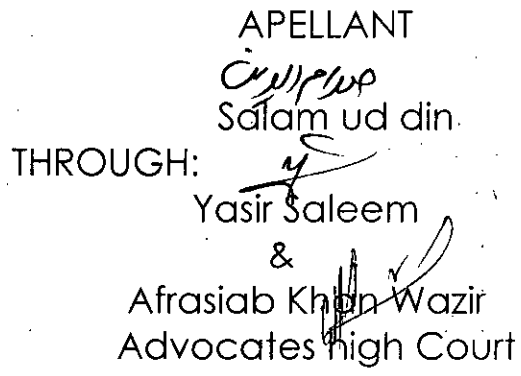 APELLANT
صدام الدين
Salam ud din
THROUGH:
Yasir Saleem
&
Afrasiab Khan Wazir
Advocates high Court